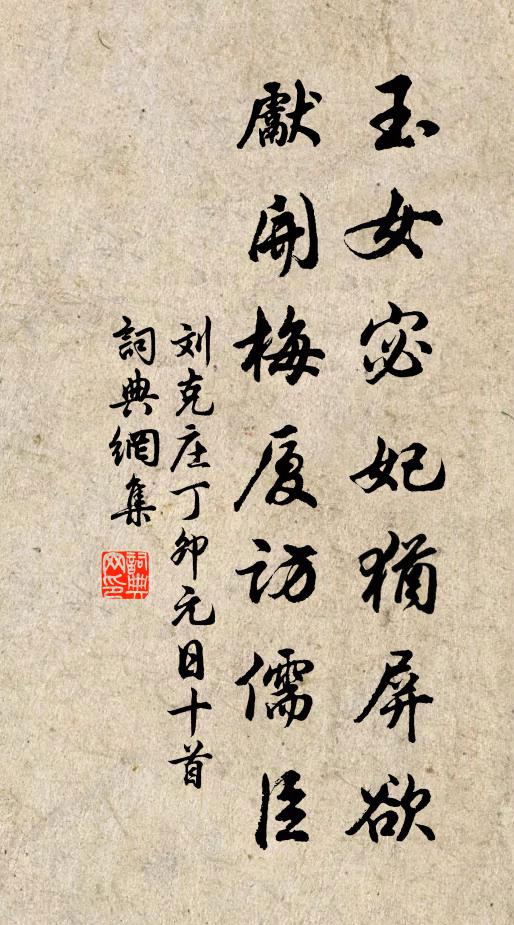 玉女宓妃猶屏欲
獻開梅厦訪儒臣
刘克庄丁卯元日十首
詞典網集
詞典网印